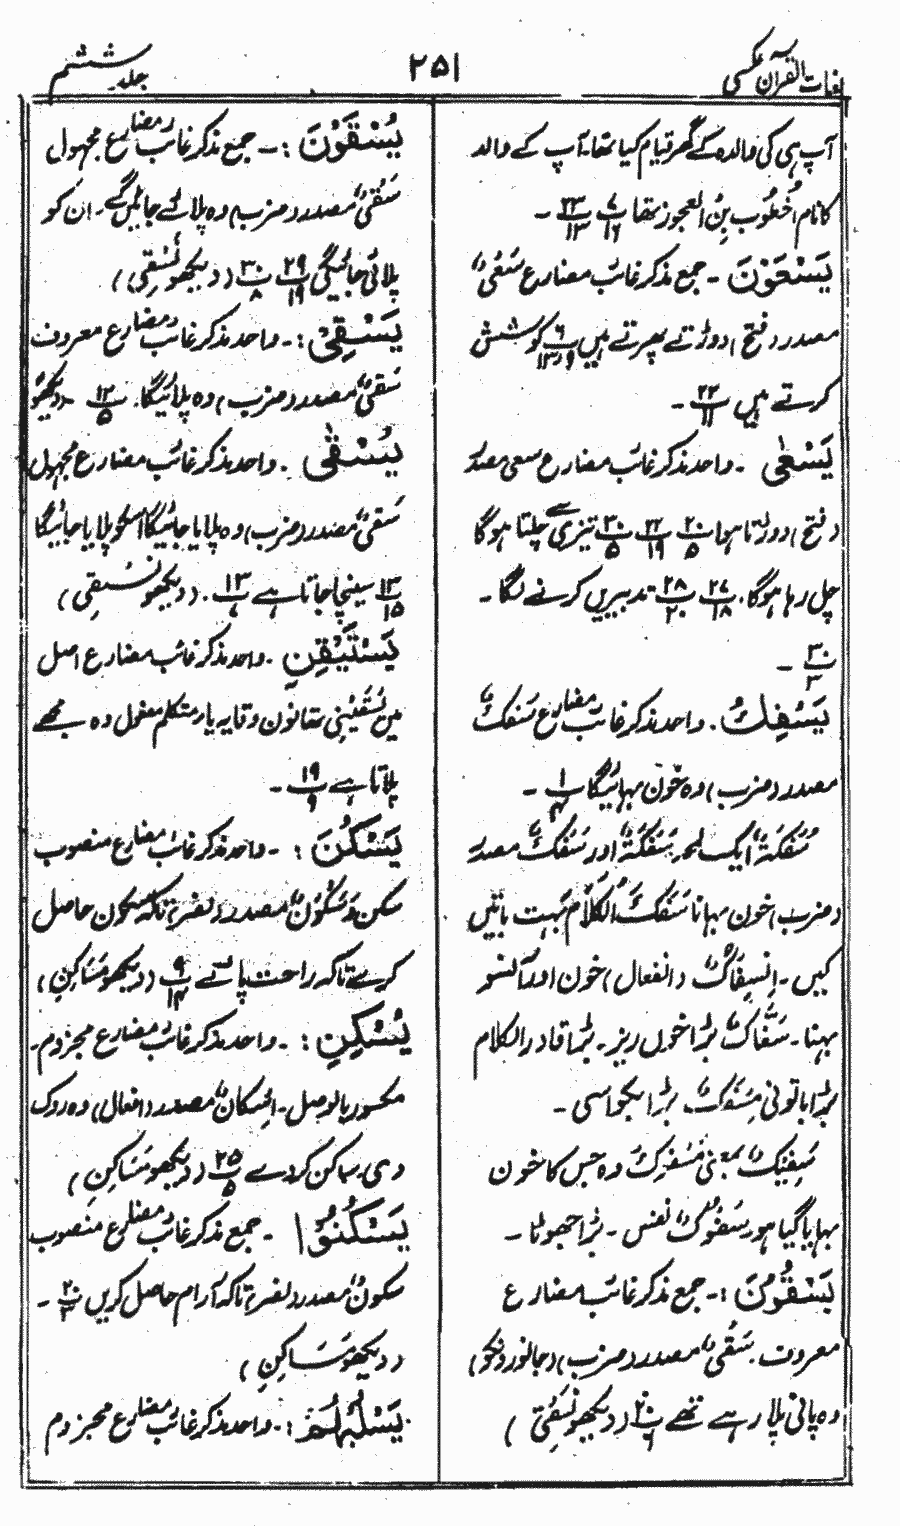 لغات القرآن عکسی
۲۵۱
جلد ششم
آپ ہی کی والدہ کے گھر قیام کیا تھا۔ آپ کے والد
کا نام اُخطوب بِنُ العجوز تھا ۷/۱۶ ۲۳/۱۳ ۔
یَسْعَوْنَ ۔ جمع مذکر غائب مضارع سَعْیٌ
مصدر (فتح) دوڑتے پھرتے ہیں ۶/۱۳و۹ کوشش
کرتے ہیں ۲۲/۱۱ ۔
یَسْعٰی ۔ واحد مذکر غائب مضارع سعی مصدر
(فتح) دوڑتا ہوا ۲۰/۵ ۲۲/۱۹ ۳۰/۵ تیزی سے چلتا ہوگا
چل رہا ہوگا ۔ ۲۷/۱۸ ۲۸/۲۰ تدبیریں کرنے لگا ۔
۳۰/۳ ۔
یَسْفِكُ ۔ واحد مذکر غائب مضارع سَفْكٌ
مصدر (ضرب) وہ خون بہائیگا ۱/۴ ۔
سُفْكَةٌ ایک لمحہ سَفْكَةٌ اور سَفْكٌ مصدر
(ضرب) خون بہانا سَفَكَ الْكَلَامَ بہت باتیں
کیں ۔ اِنْسِفَاكٌ (انفعال) خون اور آنسو
بہنا ۔ سَفَّاكٌ بڑا خوں ریز ۔ بڑا قادر الکلام
بڑا باتونی مِسْفَكٌ بڑا بکواسی ۔
سَفِیْكٌ بمعنی مَسْفُوْكٌ وہ جس کا خون
بہایا گیا ہو سَفُوْكٌ نفس ۔ بڑا جھوٹا ۔
یَسْقُوْنَ :۔ جمع مذکر غائب مضارع
معروف ۔ سَقْیٌ مصدر (ضرب) (جانور وں کو)
وہ پانی پلا رہے تھے ۲۰/۶ (دیکھو نَسْقِیْ)
یُسْقَوْنَ :۔ جمع مذکر غائب مضارع مجہول
سَقْیٌ مصدر (ضرب) وہ پلائے جائیں گے ۔ ان کو
پلائی جائیگی ۲۹/۱۹ ۳۰/۸ (دیکھو نُسْقِیْ)
یَسْقِیْ :۔ واحد مذکر غائب مضارع معروف
سَقْیٌ مصدر (ضرب) وہ پلائیگا ۔ ۱۲/۵ (دیکھو
یُسْقٰی ۔ واحد مذکر غائب مضارع مجہول
سَقْیٌ مصدر (ضرب) وہ پلایا جائیگا اسکو پلایا جائیگا
۱۳/۱۵ سینچا جاتا ہے ۱۳/۷ ۔ (دیکھو نَسْقِیْ)
یَسْتَیْقِنِ ۔ واحد مذکر غائب مضارع اصل
میں تھا نون وقایہ یار متکلم مفعول وہ مجھے
پلاتا ہے ۱۹/۹ ۔
یَسْكُنَ :۔ واحد مذکر غائب مضارع منصوب
سکن و سُکُوْنٌ مصدر (نصر) تاکہ سکون حاصل
کرے تاکہ راحت پائے ۹/۱۴ (دیکھو مَسَاكِنِ)
یُسْكِنِ :۔ واحد مذکر غائب مضارع مجزوم ۔
مکسور بالوصل ۔ اِسْكَانٌ مصدر (افعال) وہ روک
دے ساکن کردے ۲۵/۵ (دیکھو مَسَاكِنِ)
یَسْكُنُوْا ۔ جمع مذکر غائب مضارع منصوب
سکونٌ مصدر (نصر) تاکہ آرام حاصل کریں ۲۰/۳ ۔
(دیکھو مَسَاكِنِ)
یَسْلُبْهُمْ :۔ واحد مذکر غائب مضارع مجزوم